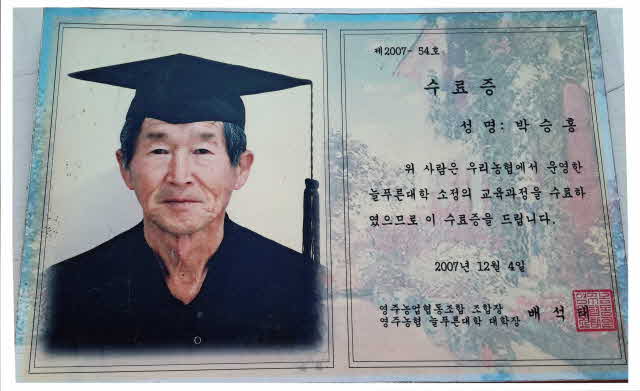 제2007- 54호
수 료 증
성 명: 박 승 흥
위 사람은 우리농협에서 운영한
늘푸른대학 소정의 교육과정을 수료하
였으므로 이 수료증을 드립니다.
2007년 12월 4일
영주농업협동조합 조합장
영주농협 늘푸른대학 대학장 배 석 태